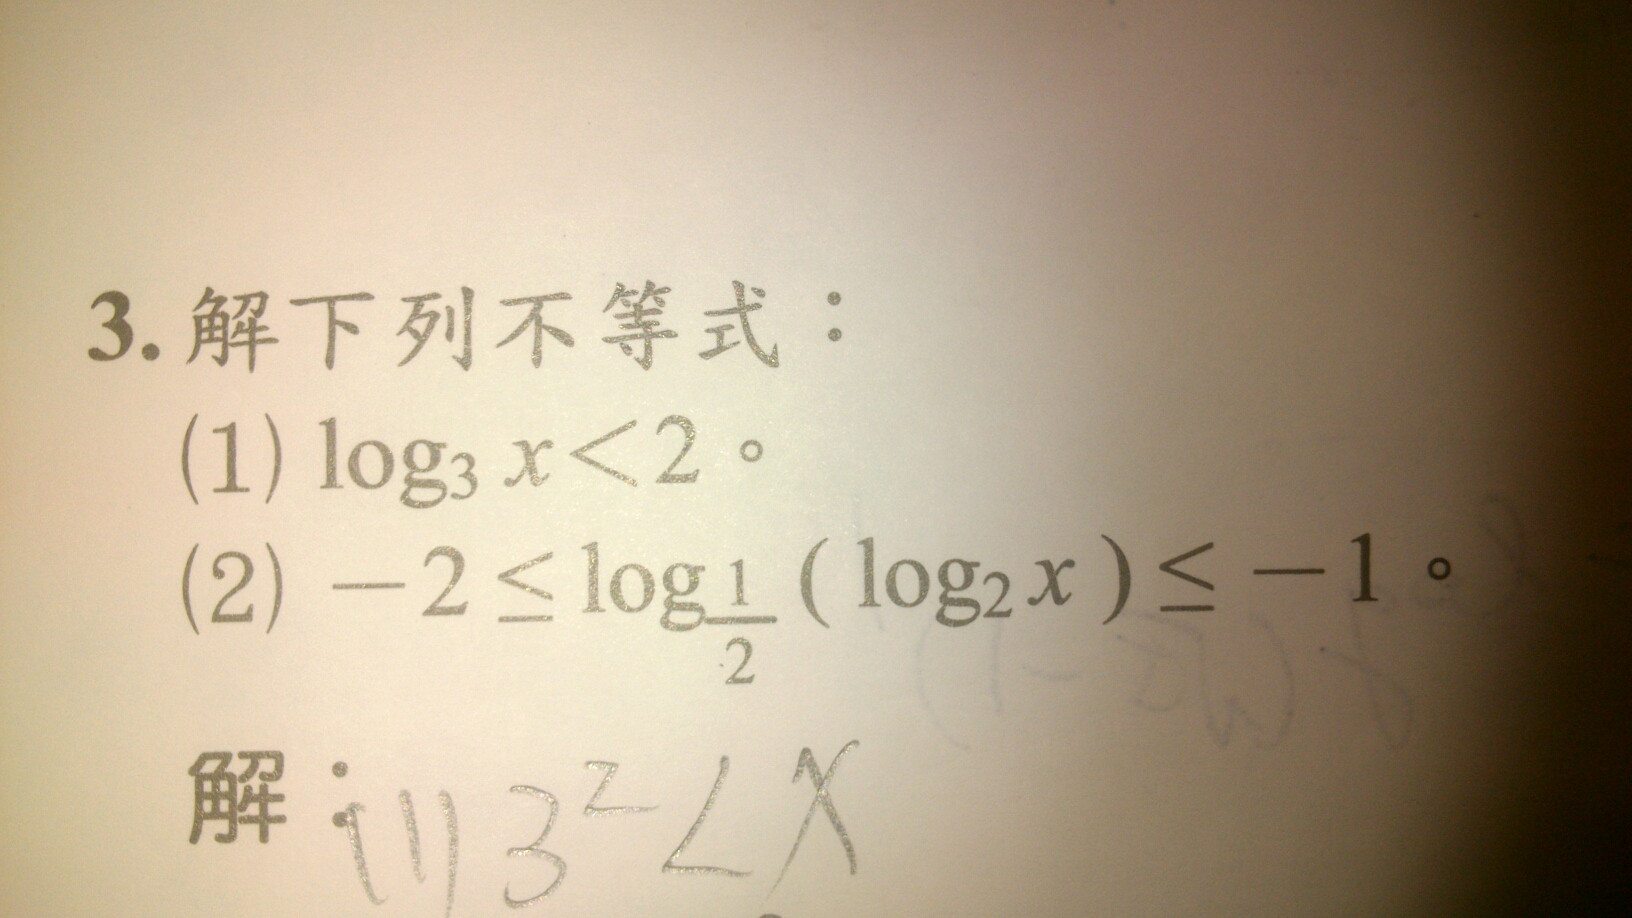 3. 解下列不等式：
(1) log₃ x<2。
(2) －2 ≤ log_{1/2} ( log₂ x ) ≤ －1。
解：(1) 3² < x